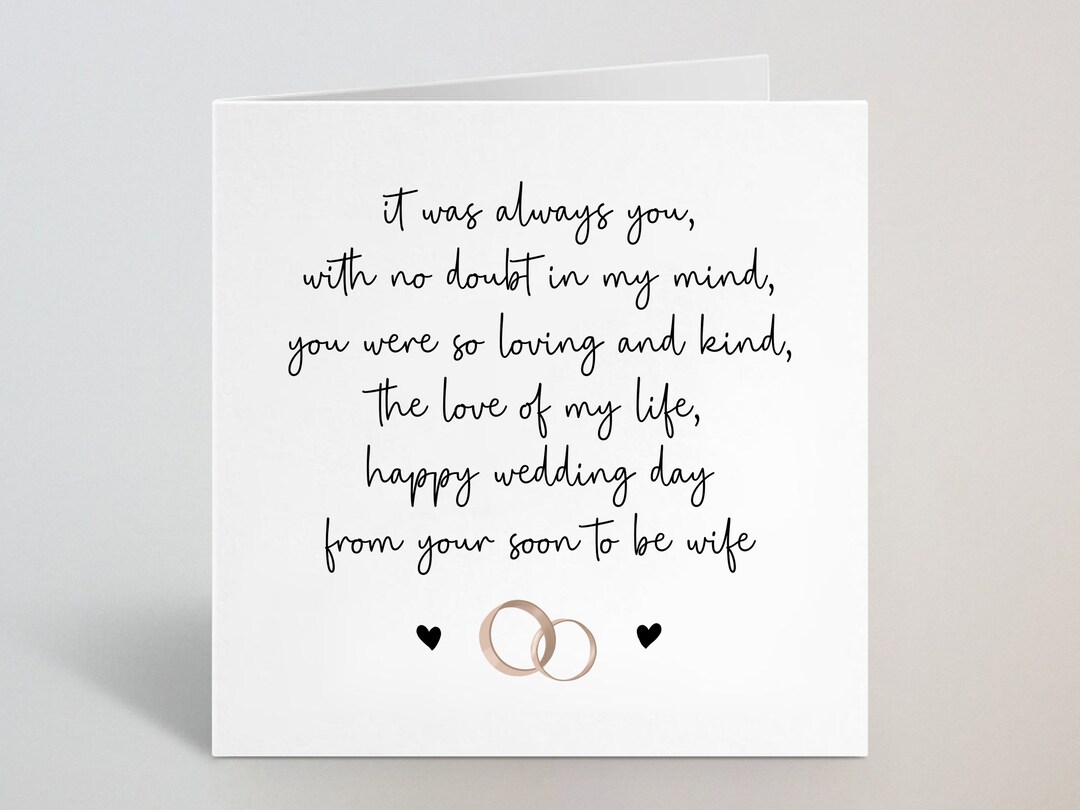 it was always you,
with no doubt in my mind,
you were so loving and kind,
the love of my life,
happy wedding day
from your soon to be wife